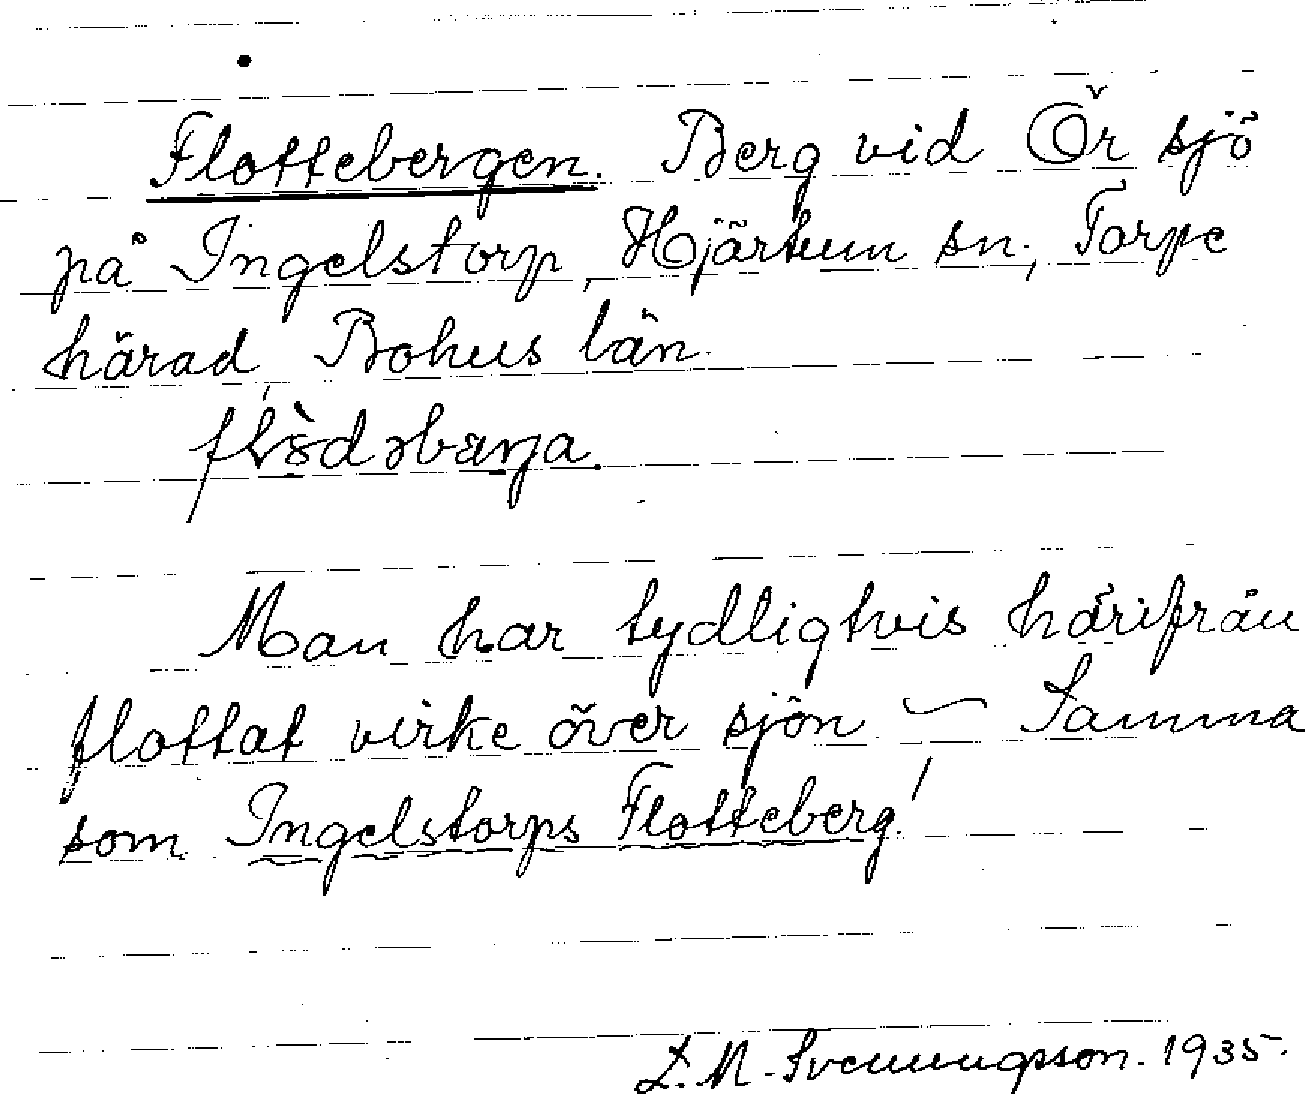 Flottebergen. Berg vid Ör sjö
på Ingelstorp, Hjärtum sn; Torpe
härad, Bohus län.
Man har tydligtvis härifrån
flottat virke över sjön — Samma
som Ingelstorps Flotteberg!
L. M. Svenungsson. 1935.